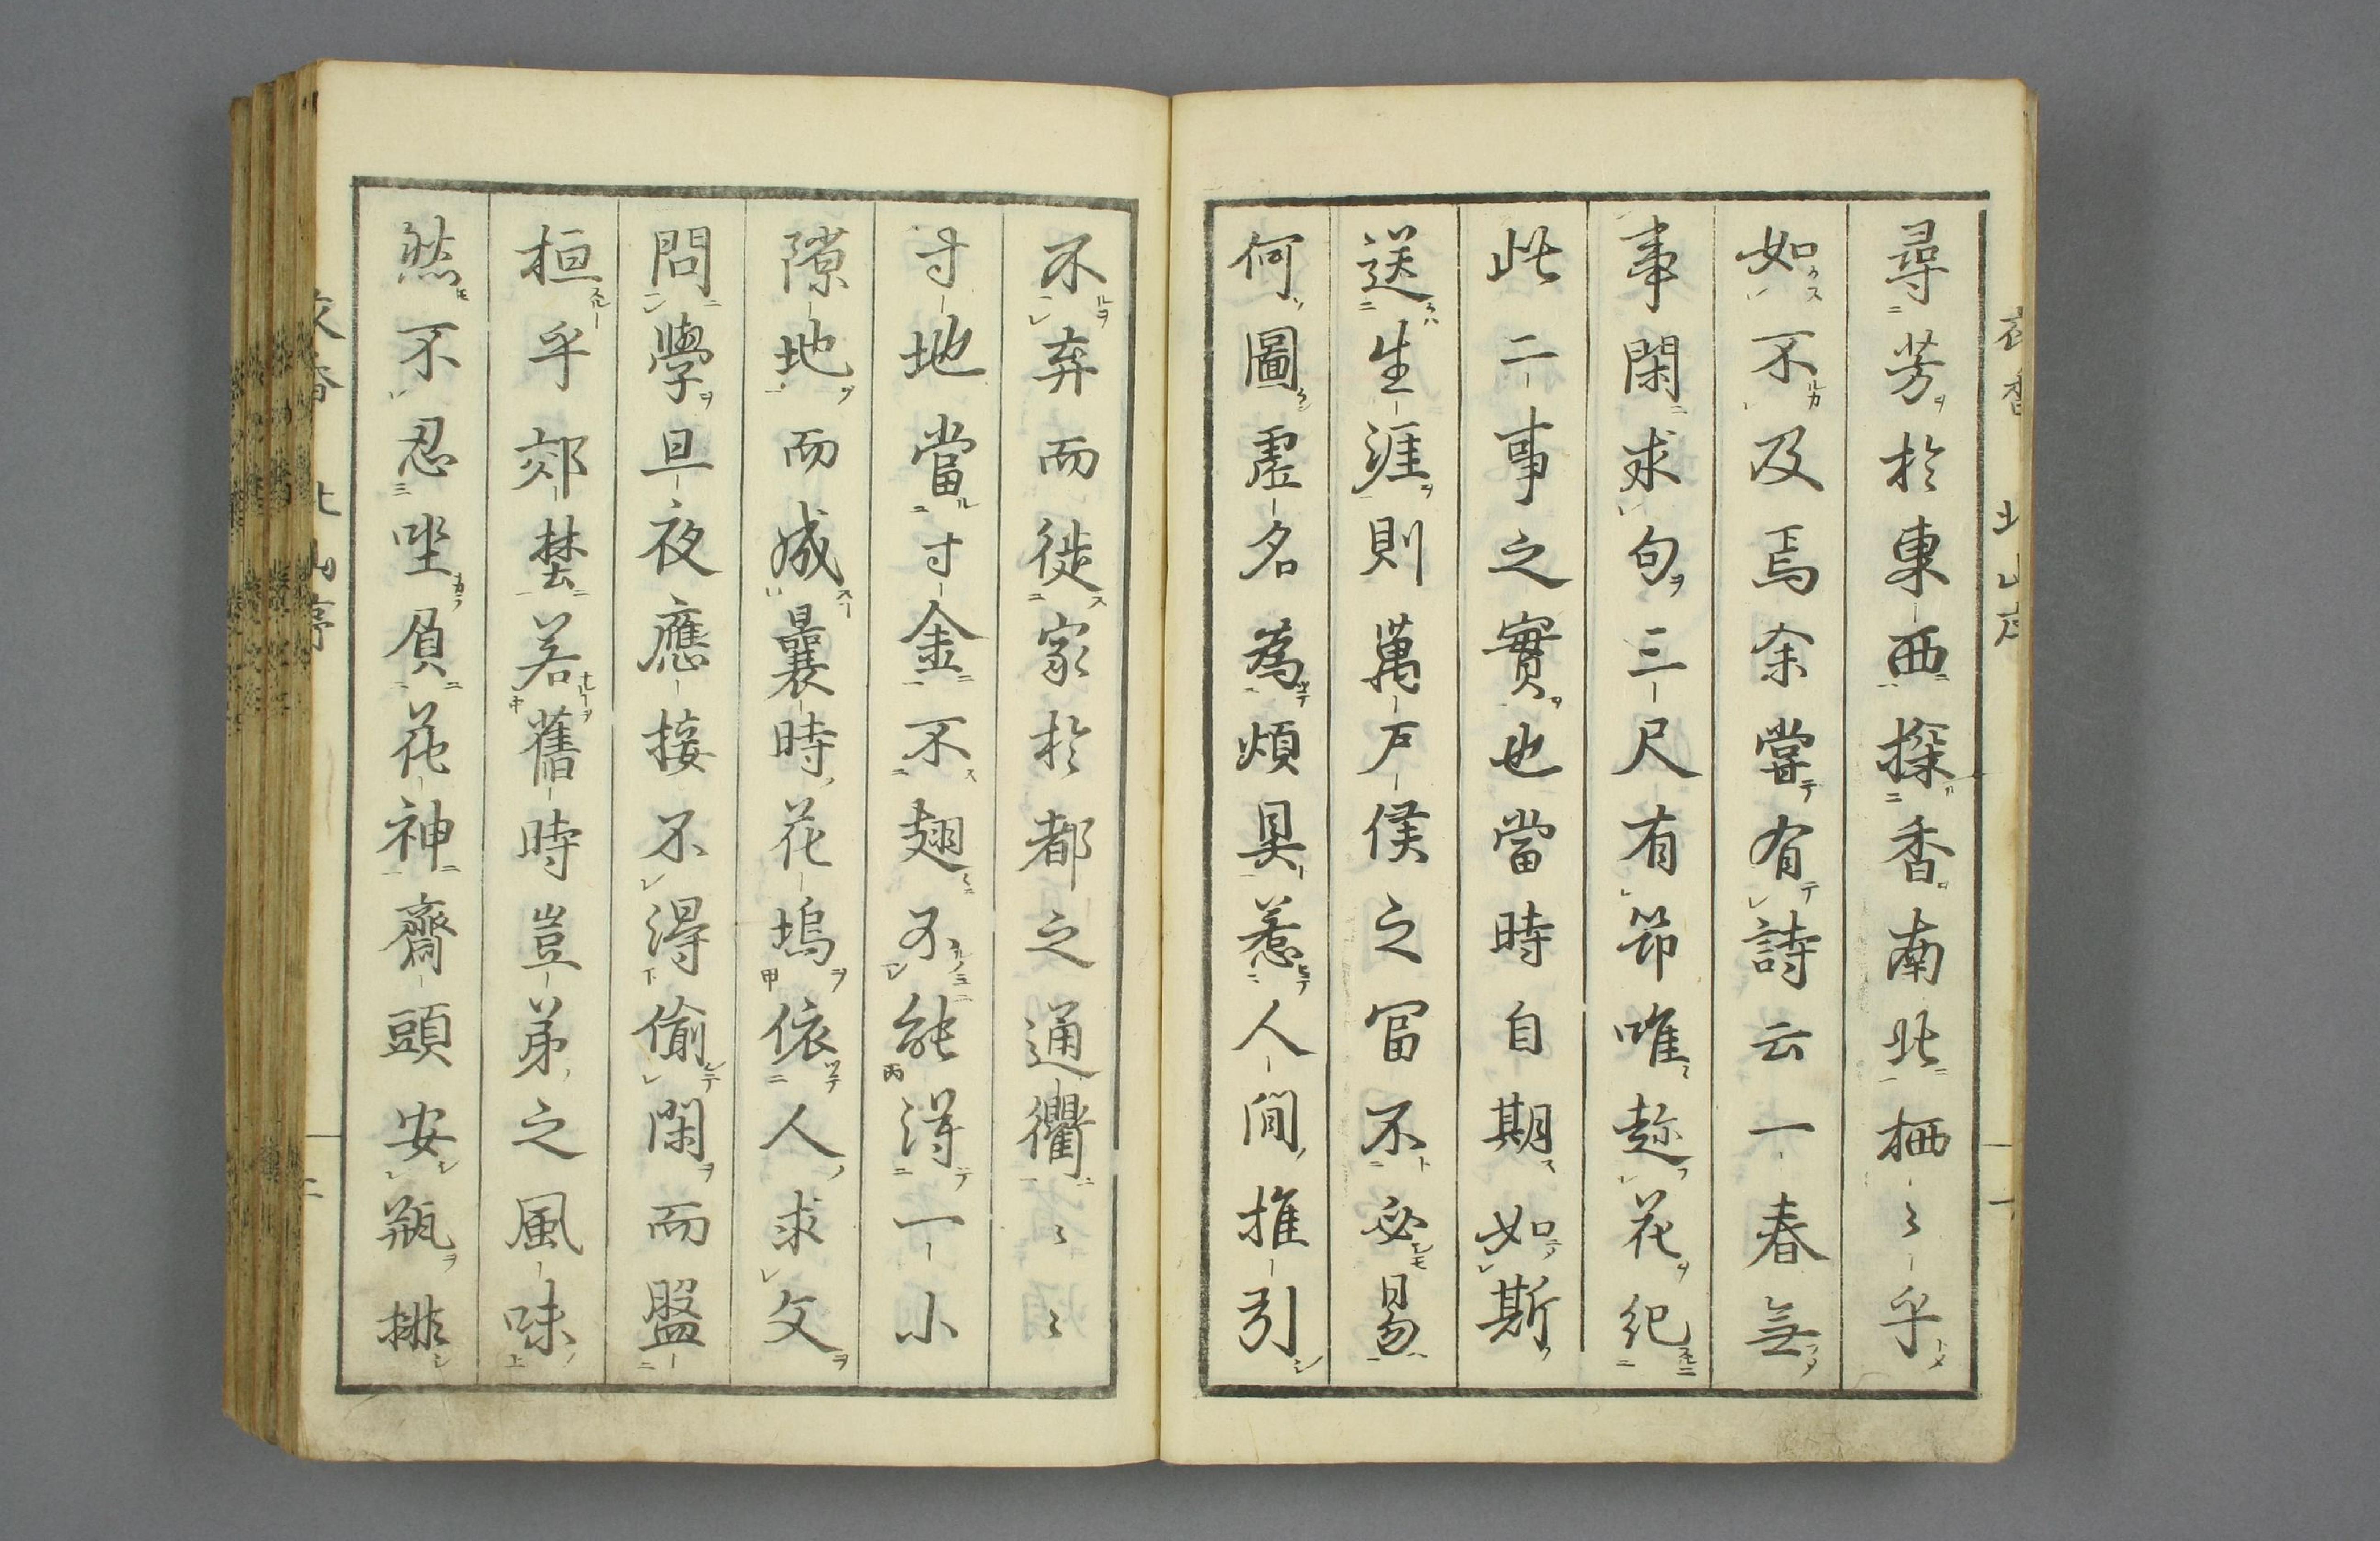 尋芳於東西探香南北栖〻乎
如不及焉余嘗有詩云一春無
事閑求句三尺有筇唯趂花紀
此二事之實也當時自期如斯
送生涯則萬戸侯之冨不必易
何圖虚名為煩具惹人間推引
不弃而徙家於都之通衢〻〻
寸地當寸金不翅不能得一小
隙地而成曩時花塢依人求文
問學旦夜應接不得偷閑而盤
桓乎郊埜若舊時豈弟之風味
然不忍坐負花神齋頭安瓶排